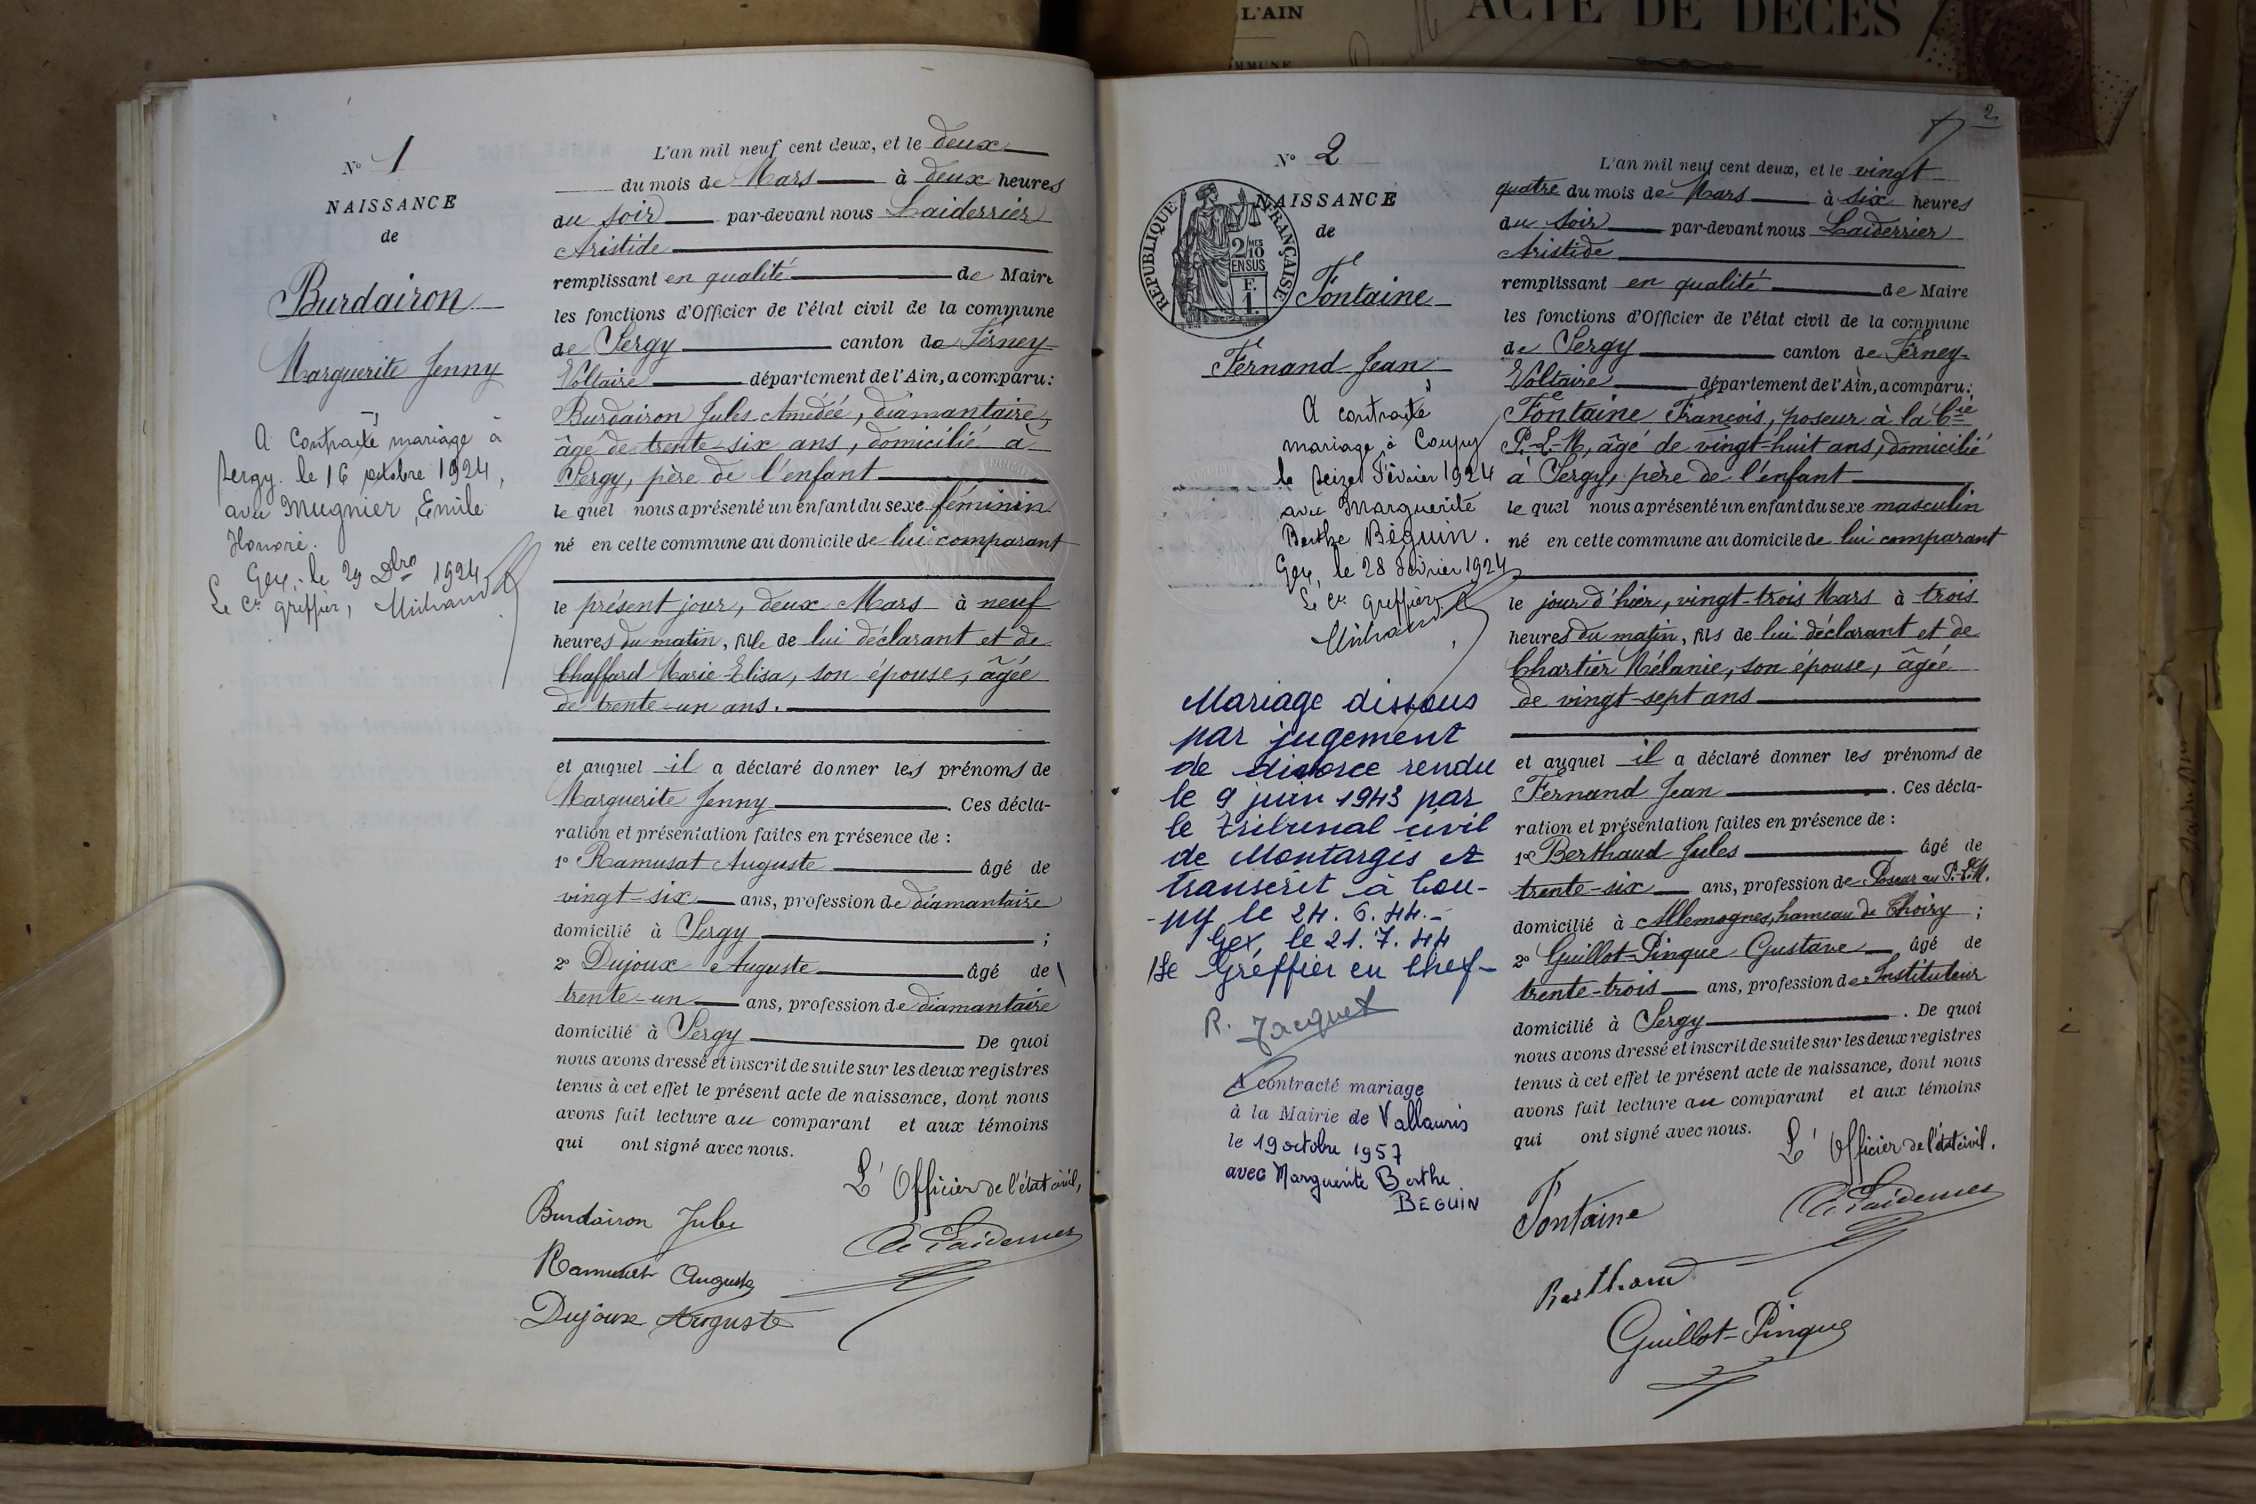 L'AIN
ACTE DE DÉCÈS
N° 1
NAISSANCE
de
Burdairon
Marguerite Jenny
A contracté mariage à
Sergy. le 16 octobre 1924,
avec Mugnier, Emile
Honoré.
Gex, le 29 Dbre 1924
Le Cis greffier,
L'an mil neuf cent deux, et le deux
du mois de Mars à deux heures
du soir par-devant nous Laiderrier
Aristide
remplissant en qualité de Maire
les fonctions d'Officier de l'état civil de la commune
de Sergy canton de Ferney-
Voltaire département de l'Ain, a comparu:
Burdairon Jules-Amédée, diamantaire,
âgé de trente-six ans, domicilié à
Sergy, père de l'enfant
lequel nous a présenté un enfant du sexe féminin
né en cette commune au domicile de lui comparant
le présent jour, deux Mars à neuf
heures du matin, fille de lui déclarant et de
Chaffard Marie-Elisa, son épouse, âgée
de trente-un ans.
et auquel il a déclaré donner les prénoms de
Marguerite Jenny. Ces décla-
ration et présentation faites en présence de :
1° Ramusat Auguste âgé de
vingt-six ans, profession de diamantaire
domicilié à Sergy ;
2° Dujoux Auguste âgé de
trente-un ans, profession de diamantaire
domicilié à Sergy De quoi
nous avons dressé et inscrit de suite sur les deux registres
tenus à cet effet le présent acte de naissance, dont nous
avons fait lecture au comparant et aux témoins
qui ont signé avec nous.
L'Officier de l'état civil,
Burdairon Jules
Ramusat Auguste
A Laiderrier
Dujoux Auguste
2
N° 2
NAISSANCE
de
RÉPUBLIQUE FRANÇAISE
2/10 MES
EN SUS
F.
1.
Fontaine
Fernand Jean
A contracté
mariage à Coupy
le seize Février 1924
avec Marguerite
Berthe Béguin.
Gex, le 28 février 1924
Le Cis greffier,
Mariage dissous
par jugement
de divorce rendu
le 9 juin 1943 par
le tribunal civil
de Montargis et
transcrit à Cou-
-py le 24. 6. 44.-
Gex, le 21. 7. 44
Le Greffier en Chef-
R. Jacquet
A contracté mariage
à la Mairie de Vallauris
le 19 octobre 1957
avec Marguerite Berthe
BEGUIN
L'an mil neuf cent deux, et le vingt
quatre du mois de Mars à six heures
du soir par-devant nous Laiderrier
Aristide
remplissant en qualité de Maire
les fonctions d'Officier de l'état civil de la commune
de Sergy canton de Ferney-
Voltaire département de l'Ain, a comparu:
Fontaine François, poseur à la Cie
P.-L.-M, âgé de vingt-huit ans, domicilié
à Sergy, père de l'enfant
lequel nous a présenté un enfant du sexe masculin
né en cette commune au domicile de lui comparant
le jour d'hier, vingt-trois Mars à trois
heures du matin, fils de lui déclarant et de
Chartier Mélanie, son épouse, âgée
de vingt-sept ans
et auquel il a déclaré donner les prénoms de
Fernand Jean. Ces décla-
ration et présentation faites en présence de :
1° Berthaud Jules âgé de
trente-six ans, profession de Poseur au P.-L.-M.
domicilié à Allemognes, hameau de Thoiry ;
2° Guillot-Pingue Gustave âgé de
trente-trois ans, profession de Instituteur
domicilié à Sergy. De quoi
nous avons dressé et inscrit de suite sur les deux registres
tenus à cet effet le présent acte de naissance, dont nous
avons fait lecture au comparant et aux témoins
qui ont signé avec nous.
L'Officier de l'état civil.
Fontaine
A Laiderrier
Berthaud
Guillot-Pingue